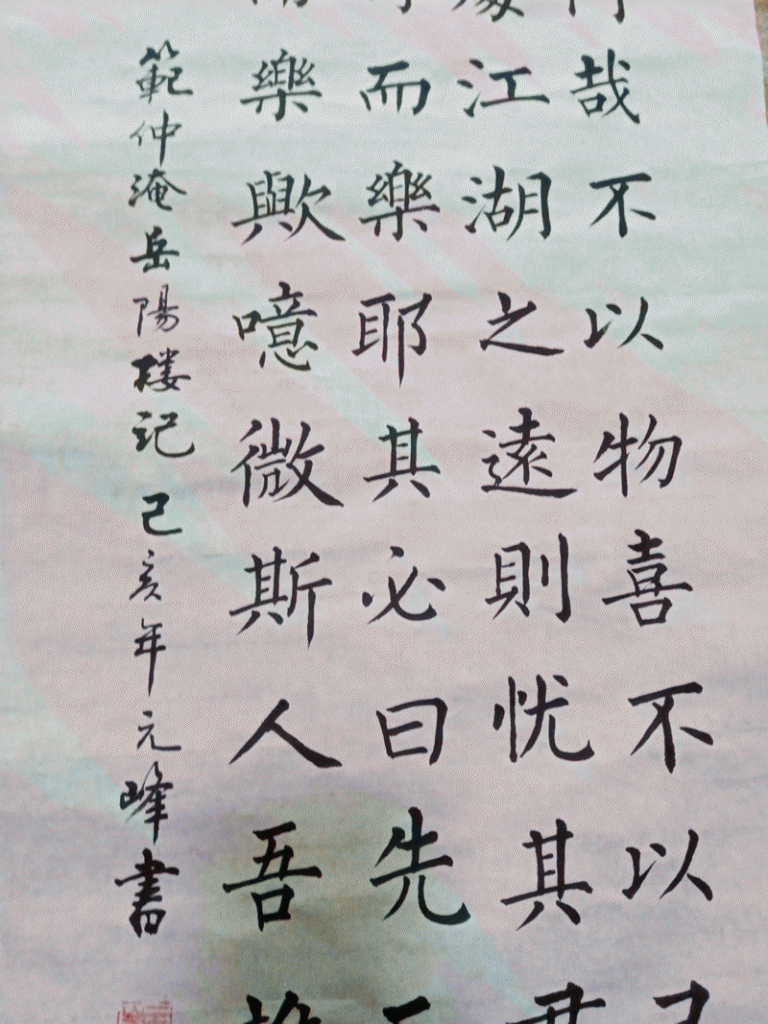 哉不以物喜不以
江湖之遠則忧其
而樂耶其必曰先
樂歟噫微斯人吾
範仲淹岳陽楼記己亥年元峰書